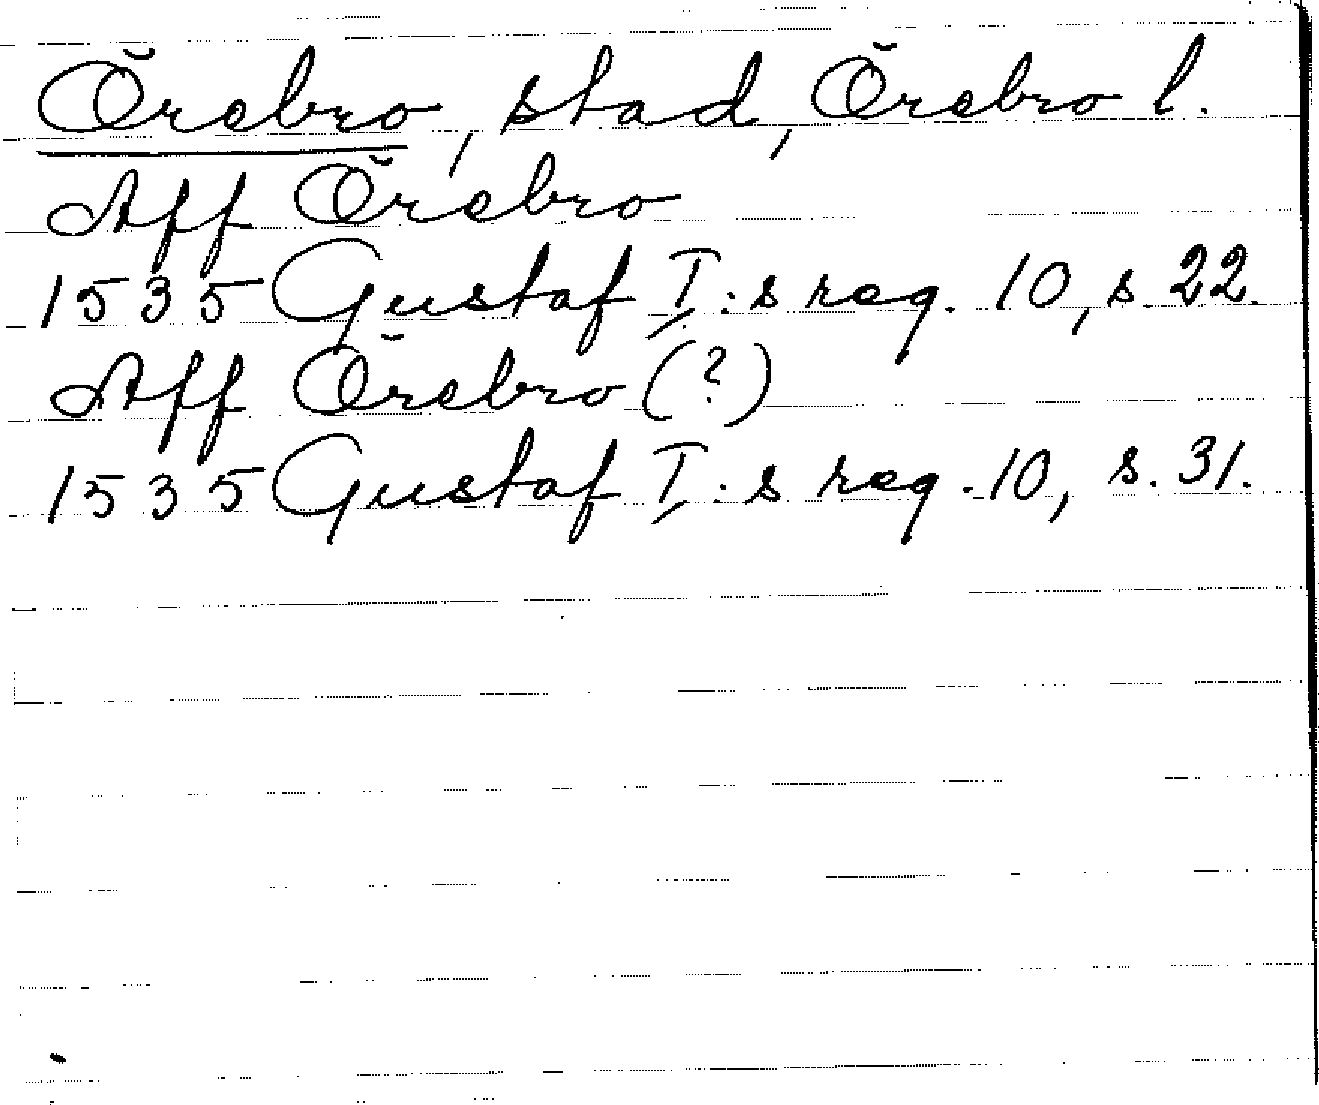 Örebro, stad, Örebro l.
Aff Örebro
1535 Gustaf I:s reg. 10, s. 22.
Aff Örebro (?)
1535 Gustaf I:s reg. 10, s. 31.